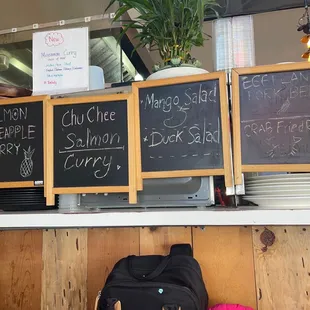 New
Massaman Curry
MON
APPLE
RRY
Chu Chee
Salmon
Curry
Mango Salad
&
Duck Salad
EGGPLAN
CRAB Fried R